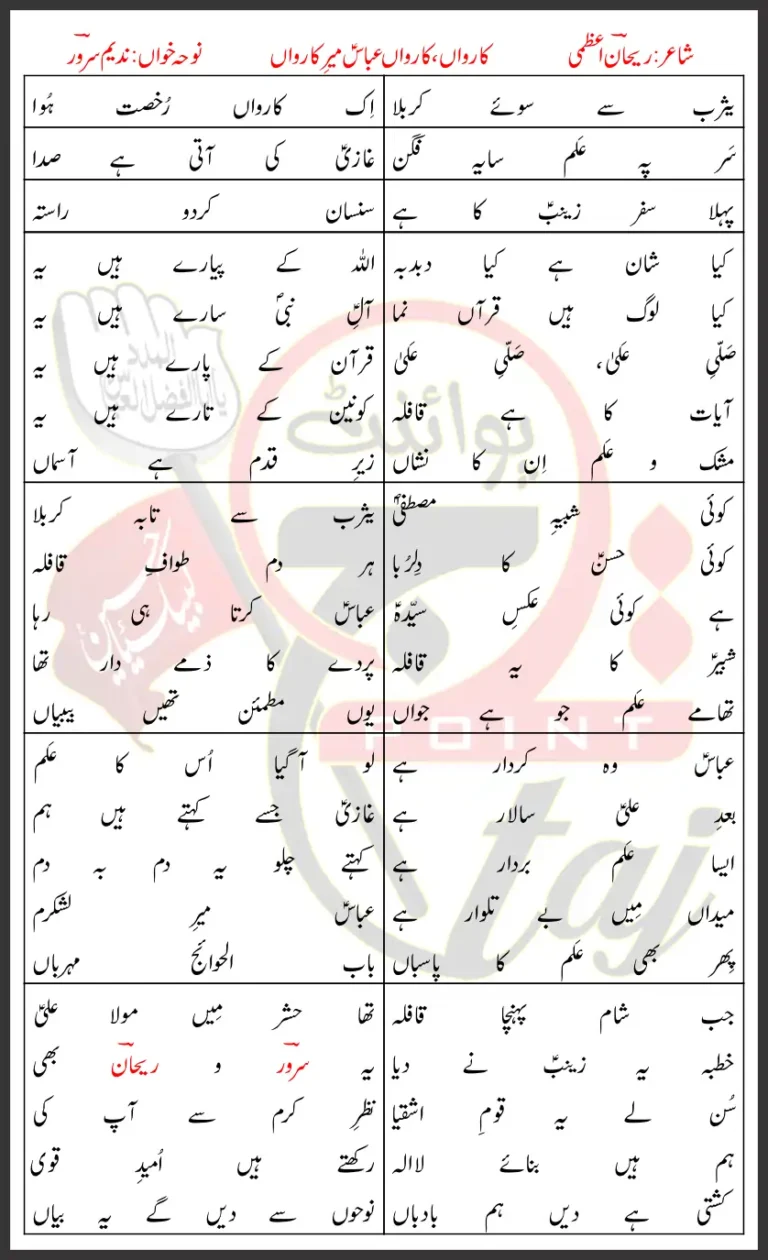 شاعر: ریحان اعظمی
کارواں، کارواں عباسؑ میرِ کارواں
نوحہ خواں: ندیم سرور
یثرب سے سوئے کربلا
اِک کارواں رُخصت ہُوا
سَر پہ عَلم سایہ فگن
غازیؑ کی آتی ہے صدا
پہلا سفر زینبؑ کا ہے
سنسان کردو راستہ
کیا شان ہے کیا دبدبہ
کیا لوگ ہیں قرآں نما
صَلّیِ عَلیٰ، صَلّیِ عَلیٰ
آیات کا ہے قافلہ
مشک و عَلم اِن کا نشاں
اللہ کے پیارے ہیں یہ
آلِؑ نبیؐ سارے ہیں یہ
قرآن کے پارے ہیں یہ
کونین کے تارے ہیں یہ
زیرِ قدم ہے آسماں
کوئی شبیہِ مصطفیٰؐ
کوئی حسنؑ کا دِلرُبا
ہے کوئی عکسِ سیّدہؑ
شبیرؑ کا یہ قافلہ
تھامے عَلم جو ہے جواں
یثرب سے تابہ کربلا
ہر دم طوافِ قافلہ
عباسؑ کرتا ہی رہا
پردے کا ذمے دار تھا
یوں مطمئن تھیں بیبیاں
عباسؑ وہ کردار ہے
بعدِ علیؑ سالار ہے
ایسا عَلم بردار ہے
میداں مِیں بے تلوار ہے
پِھر بھی عَلم کا پاسباں
لو آگیا اُس کا عَلم
غازیؑ جسے کہتے ہیں ہم
کہتے چلو یہ دم بہ دم
عباسؑ میرِ لشکرم
باب الحوائج مہرباں
جب شام پہنچا قافلہ
خطبہ یہ زینبؑ نے دیا
سُن لے یہ قومِ اشقیا
ہم ہیں بنائے لاالہ
کشتی ہے دیں ہم بادباں
تھا حشر مِیں مولا علیؑ
یہ سرور و ریحان بھی
نظرِ کرم سے آپ کی
رکھتے ہیں اُمیدِ قوی
نوحوں سے دیں گے یہ بیاں
پوائنٹ
POINT
taj